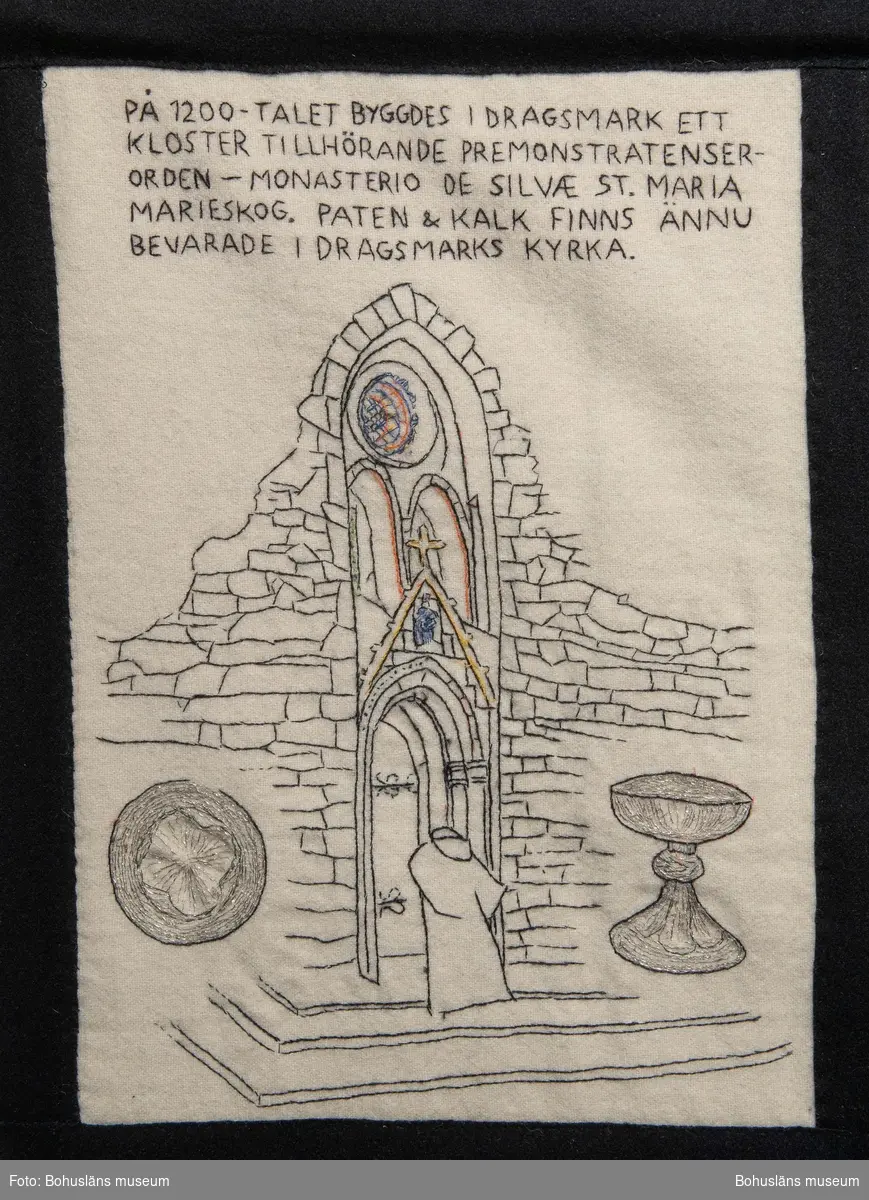 PÅ 1200-TALET BYGGDES I DRAGSMARK ETT
KLOSTER TILLHÖRANDE PREMONSTRATENSER-
ORDEN – MONASTERIO DE SILVÆ ST. MARIA
MARIESKOG. PATEN & KALK FINNS ÄNNU
BEVARADE I DRAGSMARKS KYRKA.
Foto: Bohusläns museum
Bohusläns museum